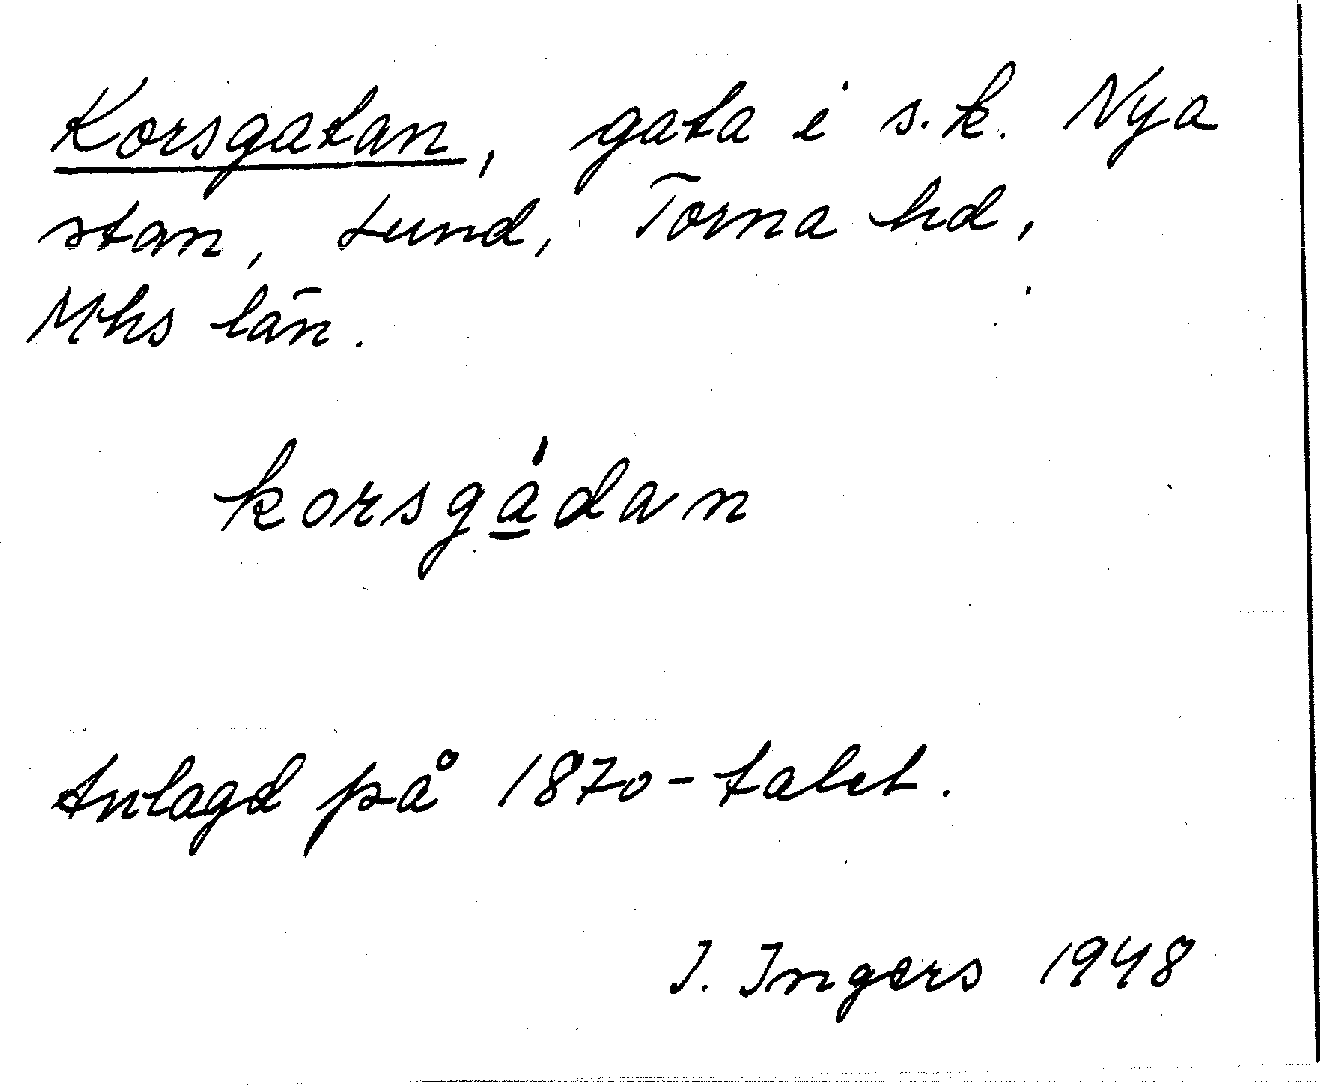 Korsgatan, gata i s.k. Nya
stan, Lund, Torna hd,
Mhs län.
korsgádan
Anlagd på 1870-talet.
I. Ingers 1948